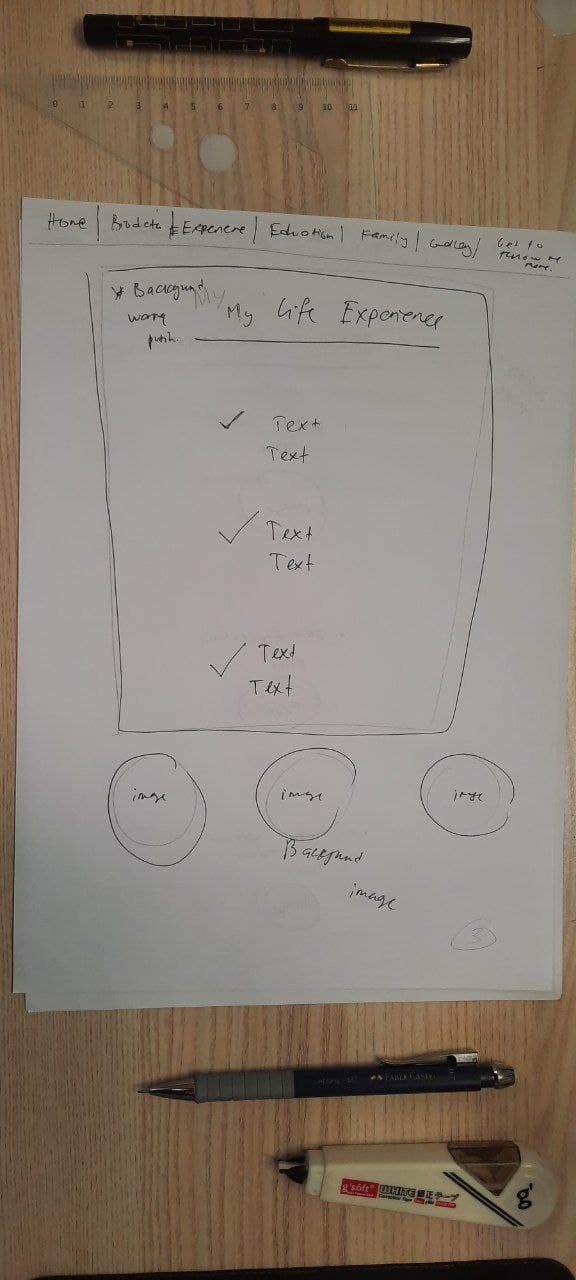 0 1 2 3 4 5 6 7 8 9 10 11
Home | Biodata | Experience | Eduction | Family | Gallery | Get to
know me
more.
* Background
warna
putih.
My
My Life Experience
✓ Text
Text
✓ Text
Text
✓ Text
Text
image image image
Background
image
3
FABER-CASTELL
g'soft
WHITE
Correction Tape
g'